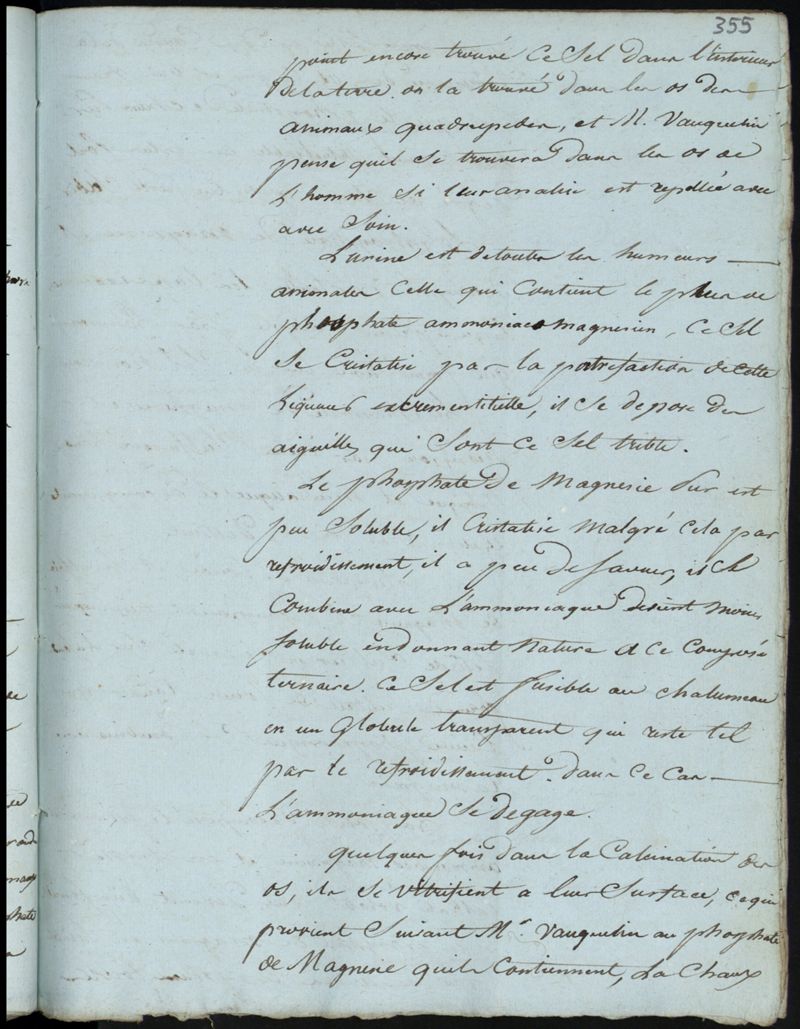 355
point encore trouvé ce Sel dans l'interieur
De la terre. on la trouvé dans les os des
animaux quadrupedes, et M. Vauquelin
pense quil se trouvera dans les os de
L'homme si leur analise est repettée avec
avec Soin.
L'urine est de toutes les humeurs
animales celle qui contient le plus de
phosphate ammoniaco magnesien, ce Sel
se Cristalise par la putrefaction de cette
Liqueur excrementitielle, il se depose des
aiguilles qui sont ce Sel triple.
Le phosphate De Magnesie Pur est
peu Soluble, il Cristalise Malgré cela par
refroidissement, il a peu De Saveur, il se
Combine avec L'ammoniaque devient moins
soluble en donnant Nature a ce Composé
ternaire. Ce Sel est fusible au chalumeau
en un Globule transparent qui reste tel
par le refroidissement. dans ce cas
L'ammoniaque Se degage.
quelques fois dans la Calcination des
os, ils se vitrifient a leur Surface, ce qui
provient Suivant Mr. Vauquelin au phosphate
de Magnesie quils Contiennent, La Chaux